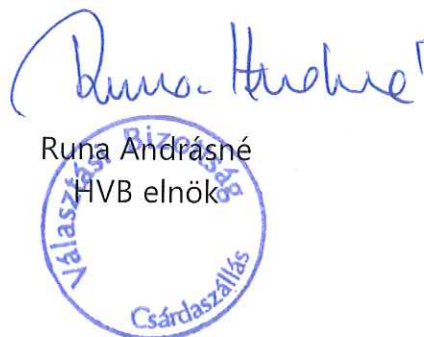 Runa Andrásné
Runa Andrásné
HVB elnök
Választási Bizottság
Csárdaszállás